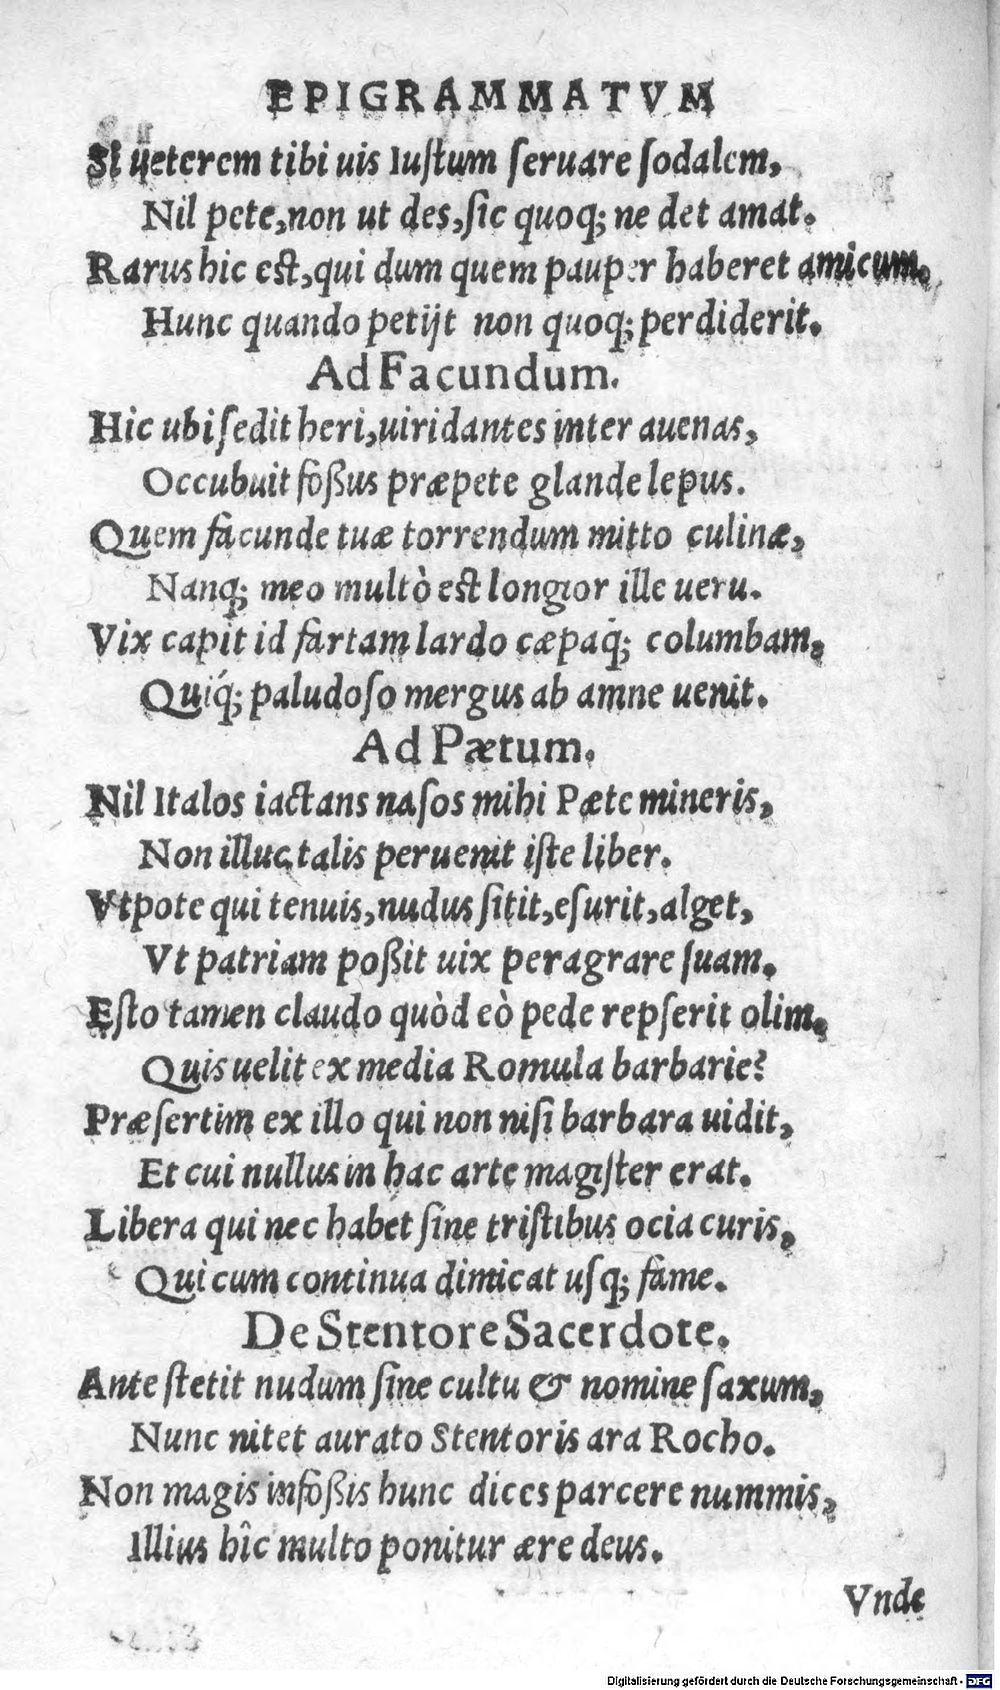 EPIGRAMMATVM
Si ueterem tibi uis Iustum seruare sodalem,
Nil pete, non ut des, sic quoq; ne det amat.
Rarus hic est, qui dum quem pauper haberet amicum.
Hunc quando petijt non quoq; perdiderit.
Ad Facundum.
Hic ubi sedit heri, uiridantes inter auenas,
Occubuit foßus præpete glande lepus.
Quem facunde tuæ torrendum mitto culinæ,
Nanq; meo multò est longior ille ueru.
Vix capit id fartam lardo cæpaq́; columbam,
Quiq́; paludoso mergus ab amne uenit.
Ad Pætum.
Nil Italos iactans nasos mihi Pæte mineris,
Non illuc talis peruenit iste liber.
Vtpote qui tenuis, nudus sitit, esurit, alget,
Vt patriam poßit uix peragrare suam.
Esto tamen claudo quòd eò pede repserit olim,
Quis uelit ex media Romula barbarie?
Præsertim ex illo qui non nisi barbara uidit,
Et cui nullus in hac arte magister erat.
Libera qui nec habet sine tristibus ocia curis,
Qui cum continua dimicat usq; fame.
De Stentore Sacerdote.
Ante stetit nudum sine cultu & nomine saxum,
Nunc nitet aurato Stentoris ara Rocho.
Non magis infoßis hunc dices parcere nummis,
Illius hîc multo ponitur ære deus.
Vnde
Digitalisierung gefördert durch die Deutsche Forschungsgemeinschaft - DFG